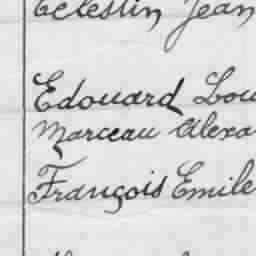 Celestin Jean
Edouard Lou
Marceau Alexa
François Emile